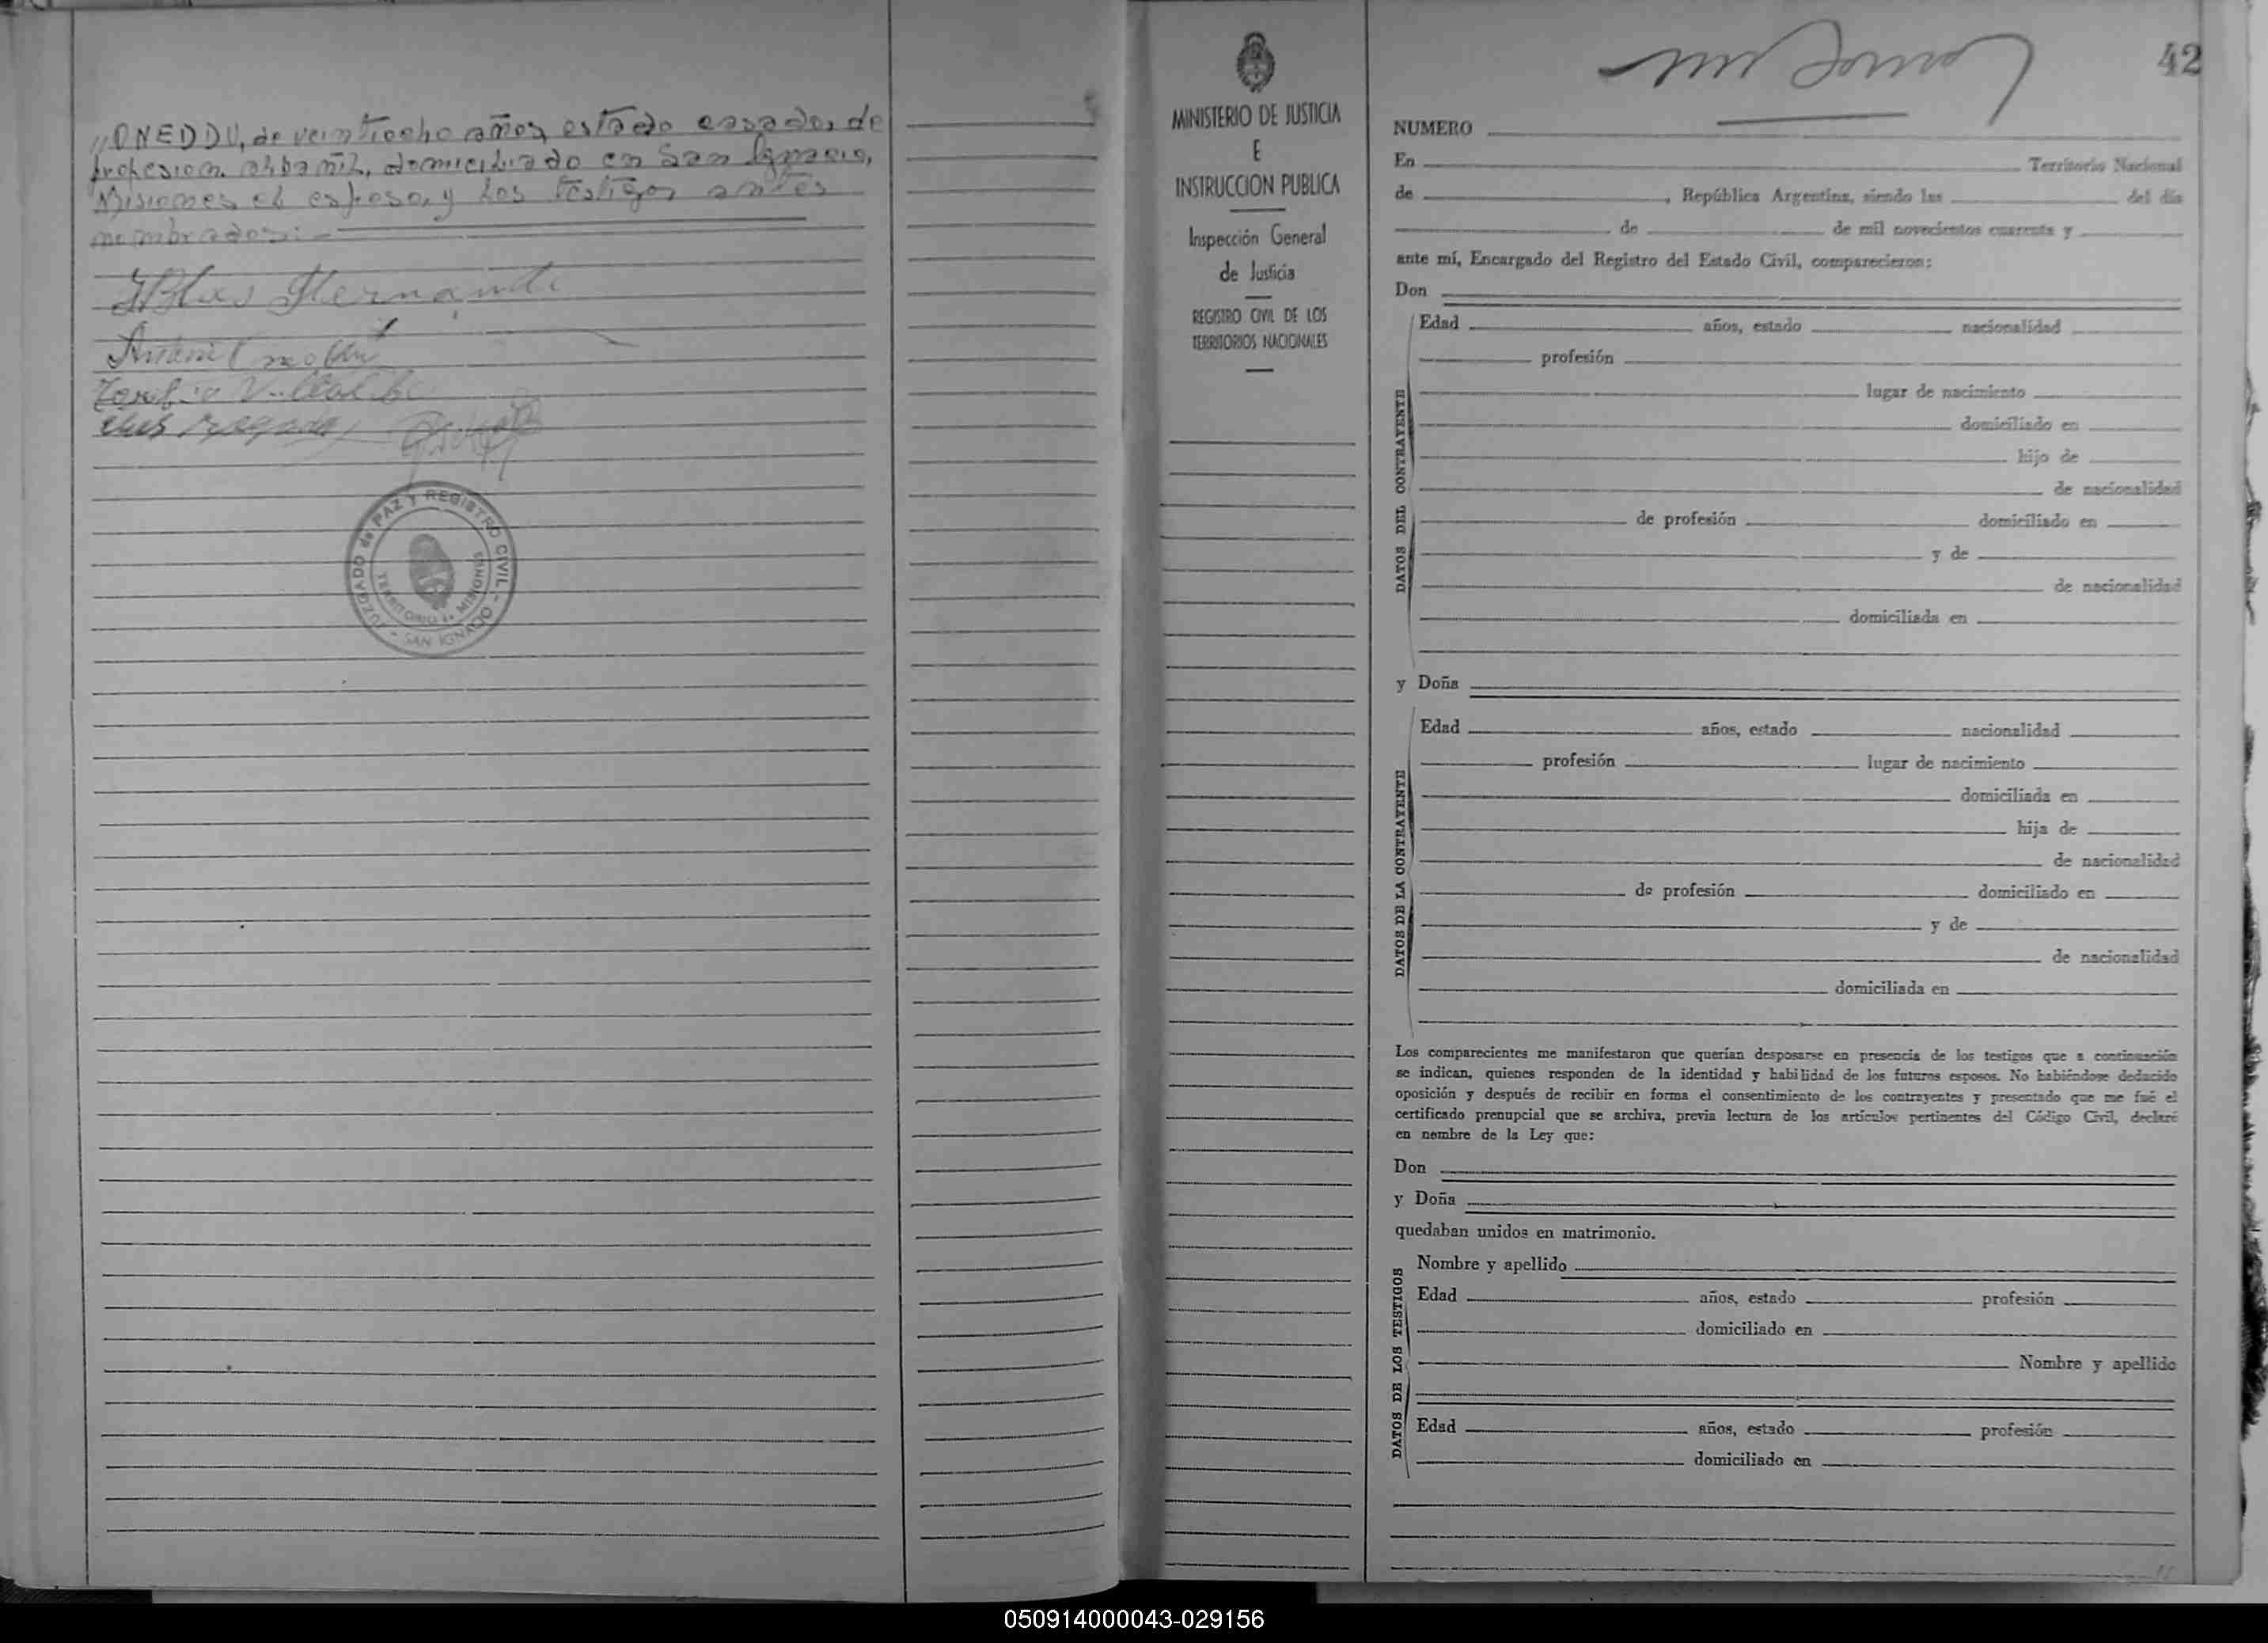 „ONEDDU, de veintiocho años, estado casado, de
profesion albañil, domiciliado en San Ignacio,
Misiones el esposo, y los testigos antes
nombrados:-
Blas
Antonio
Villalba
JUZGADO de PAZ Y REGISTRO CIVIL - SAN IGNACIO -
TERRITORIO de MISIONES
MINISTERIO DE JUSTICIA
E
INSTRUCCION PUBLICA
Inspección General
de Justicia
REGISTRO CIVIL DE LOS
TERRITORIOS NACIONALES
42
NUMERO
En Territorio Nacional
de , República Argentina, siendo las del día
de de mil novecientos cuarenta y
ante mí, Encargado del Registro del Estado Civil, comparecieron:
Don
DATOS DEL CONTRAYENTE
Edad años, estado nacionalidad
profesión
lugar de nacimiento
domiciliado en
hijo de
de nacionalidad
de profesión domiciliado en
y de
de nacionalidad
domiciliada en
y Doña
DATOS DE LA CONTRAYENTE
Edad años, estado nacionalidad
profesión lugar de nacimiento
domiciliada en
hija de
de nacionalidad
de profesión domiciliado en
y de
de nacionalidad
domiciliada en
Los comparecientes me manifestaron que querían desposarse en presencia de los testigos que a continuación
se indican, quienes responden de la identidad y habilidad de los futuros esposos. No habiéndose deducido
oposición y después de recibir en forma el consentimiento de los contrayentes y presentado que me fué el
certificado prenupcial que se archiva, previa lectura de los artículos pertinentes del Código Civil, declaré
en nombre de la Ley que:
Don
y Doña
quedaban unidos en matrimonio.
DATOS DE LOS TESTIGOS
Nombre y apellido
Edad años, estado profesión
domiciliado en
Nombre y apellido
Edad años, estado profesión
domiciliado en
050914000043-029156